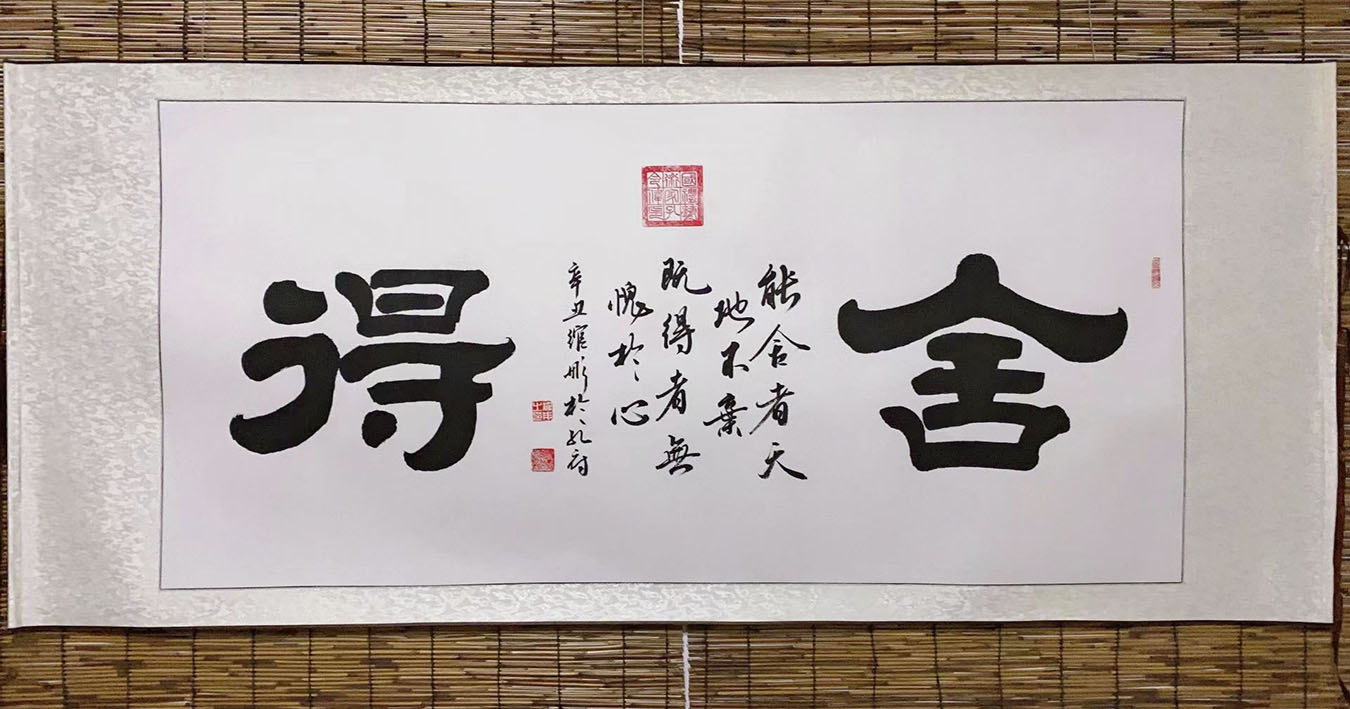 舍
能舍者天
地不棄
既得者無
愧於心
辛丑維彬於孔府
得